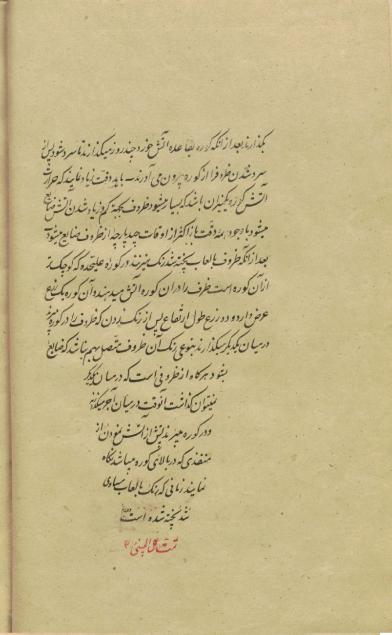 بگذارند بعد از آنکه کوره بقاعده آتش خورد چند روز میگذارند تا سرد شود پس از
سرد شدن ظروف را از کوره بیرون می آورند باید دقت زیاد نمایند که حرارت
آتش کوره یکمیزان باشد که بسیار میشود ظروف پخته که زیاد شدن آتش ضایع
میشود با وجود همه دقت باز اکثر از اوقات چند پارچه از ظروف ضایع میشود
بعد از آنکه ظروف با لعاب پخته شد رنگ میزنند و در کوره علیحده که کوچک تر
از آن کوره است ظروف را در آن کوره آتش میدهند و آن کوره یک زرع
عرض او و دو زرع طول ارتفاع پس از رنگ زدن که ظروف را در کوره میبرند
در میان یکدیگر میگذارند بنوعی که رنگ آن ظروف متصل بهم نباشد که ضایع
بشود هرگاه از ظروفی است که در میان یکدیگر
نمیتوان گذاشت آنوقت در میان آجر میگذارند
و در کوره میبرند پس از آتش نمودن از
منفذی که در بالای کوره میباشد نگاه
نمایند زمانی که رنگ با لعاب مساوی
شد پخته شده است
تمت عمل الچینی